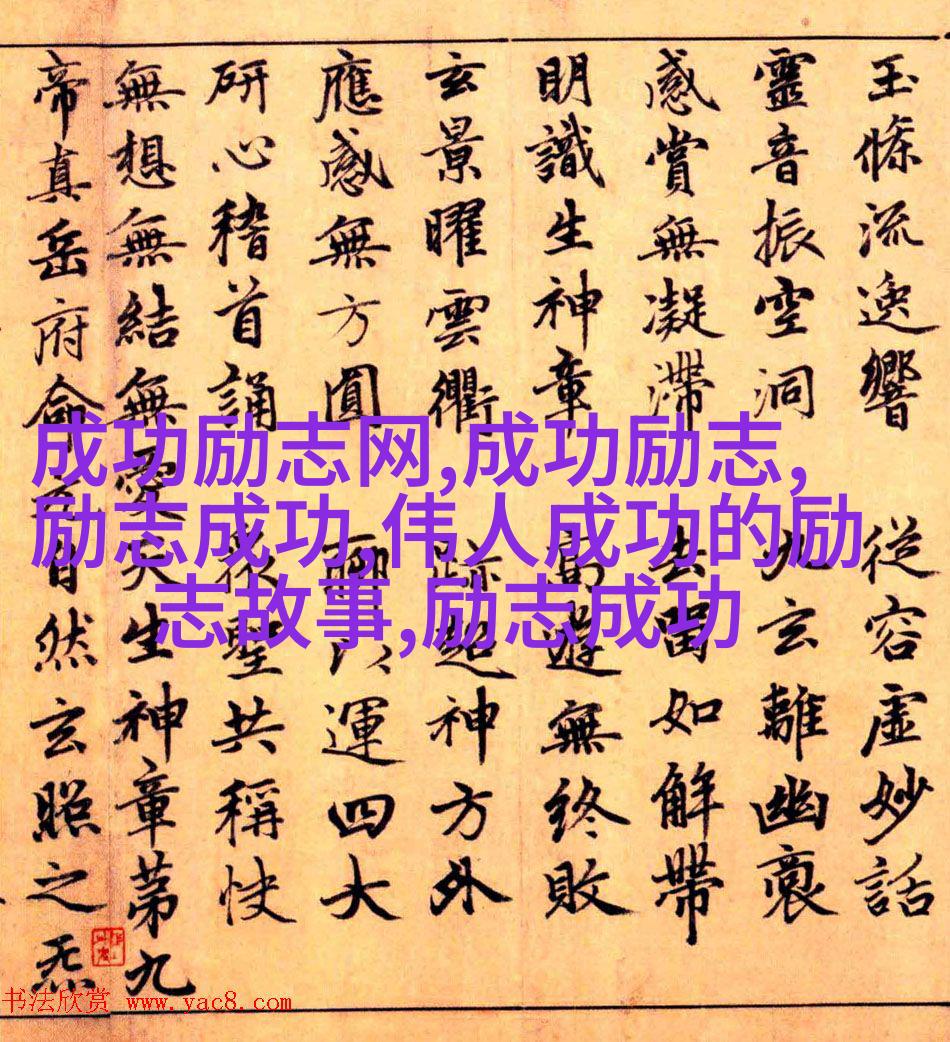 玉條流逸響 從容虛妙話
靈音振空洞 九玄離幽
感賞無凝滯 去留如解帶
明識生神章 高遊無終敗
玄景曜雲衢 跡超神方外
應感無方圓 聊以運四大
研心稽首誦 聖共稱快
無想無結無愛天生神章第九
帝真岳府命元自然玄照之炁
成功励志网,成功励志,
励志成功,伟人成功的励
志故事,励志成功
书法欣赏 www.yac8.com